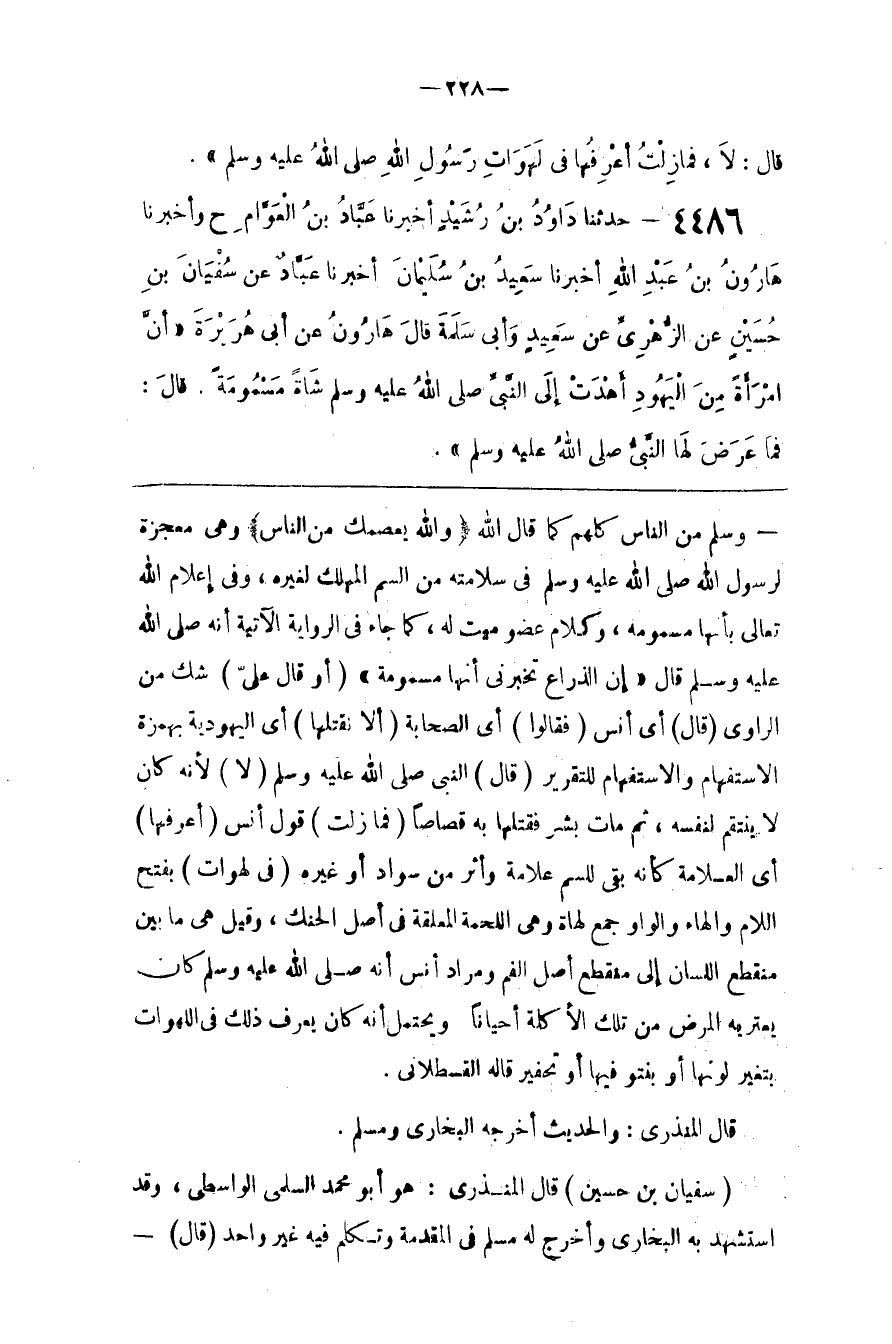 — ٢٢٨ —
قال : لاَ ، فمازِلْتُ أعْرِفُها فى لَهَوَاتِ رَسُولِ اللهِ صلى اللهُ عليه وسلم » .
٤٤٨٦ – حدثنا دَاوُدُ بنُ رُشَيْدٍ أخبرنا عَبَّادُ بنُ الْعَوَّامِ ح وأخبرنا
هَارُونُ بنُ عَبْدِ اللهِ أخبرنا سَعِيدُ بنُ سُلَيْمَانَ أخبرنا عَبَّادٌ عن سُفْيَانَ بنِ
حُسَيْنٍ عن الزُّهْرِىِّ عن سَعِيدٍ وَأبى سَلَمَةَ قالَ هَارُونُ عن أبى هُرَيْرَةَ « أنَّ
امْرَأَةً مِنَ الْيَهُودِ أَهْدَتْ إلَى النَّبىِّ صلى اللهُ عليه وسلم شَاةً مَسْمُومَةً . قالَ :
فمَا عَرَضَ لَهَا النَّبىُّ صلى اللهُ عليه وسلم » .
— وسلم من الناس كلهم كما قال الله ﴿ والله يعصمك من الناس﴾ وهى معجزة
لرسول الله صلى الله عليه وسلم فى سلامته من السم المهلك لغيره ، وفى إعلام الله
تعالى بأنها مسمومه ، وكلام عضو ميت له ، كما جاء فى الرواية الآتية أنه صلى الله
عليه وسلم قال « إن الذراع تخبرنى أنها مسمومة » ( أو قال علىّ ) شك من
الراوى (قال) أى أنس ( فقالوا ) أى الصحابة ( ألا نقتلها ) أى اليهودية بهمزة
الاستفهام والاستفهام للتقرير ( قال ) النبى صلى الله عليه وسلم ( لا ) لأنه كان
لا ينتقم لنفسه ، ثم مات بشر فقتلها به قصاصاً ( فما زلت ) قول أنس ( أعرفها )
أى العلامة كأنه بقى للسم علامة وأثر من سواد أو غيره ( فى لهوات ) بفتح
اللام والهاء والواو جمع لهاة وهى اللحمة المعلقة فى أصل الحنك ، وقيل هى ما بين
منقطع اللسان إلى منقطع أصل الفم ومراد أنس أنه صلى الله عليه وسلم كان
يعتريه المرض من تلك الأكلة أحياناً ويحتمل أنه كان يعرف ذلك فى اللهوات
بتغير لونها أو بنتو فيها أو تحفير قاله القسطلانى .
قال المنذرى : والحديث أخرجه البخارى ومسلم .
( سفيان بن حسين ) قال المنذرى : هو أبو محمد السلمى الواسطى ، وقد
استشهد به البخارى وأخرج له مسلم فى المقدمة وتكلم فيه غير واحد (قال) —